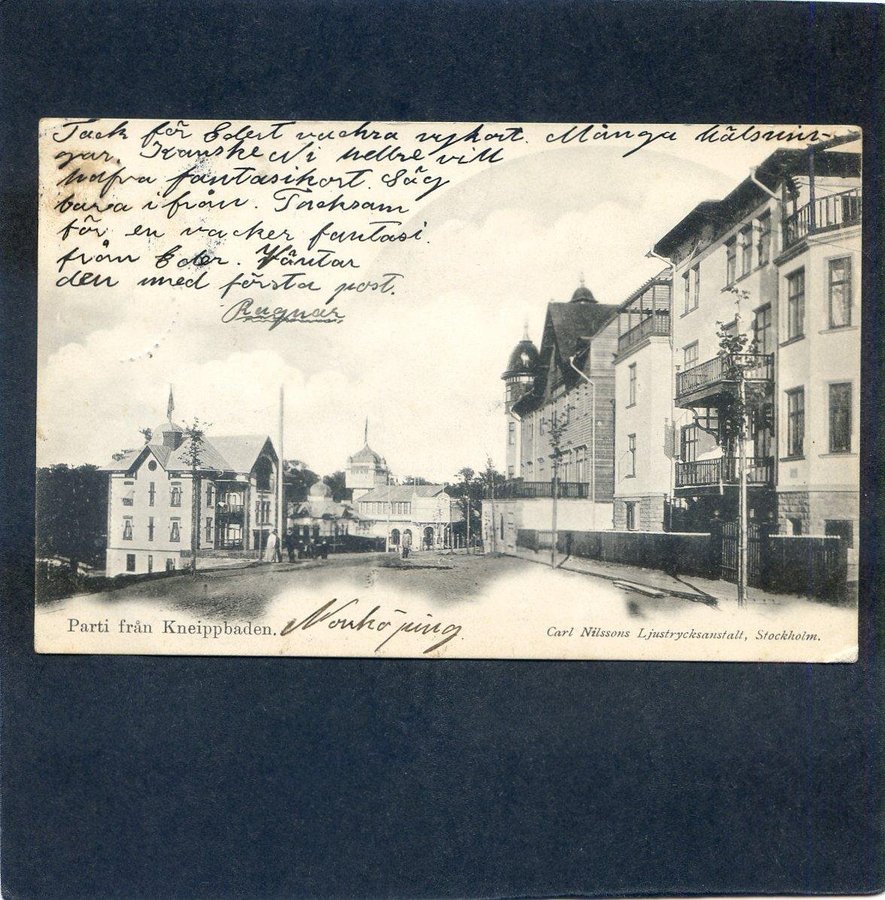 Tack för Edert vackra vykort. Många hälsnin-
gar. Kanske Ni hellre vill
hafva fantasikort. Säg
bara ifrån. Tacksam
för en vacker fantasi
från Eder. Väntar
den med första post.
Ragnar
Parti från Kneippbaden. Norrköping.
Carl Nilssons Ljustrycksanstalt, Stockholm.